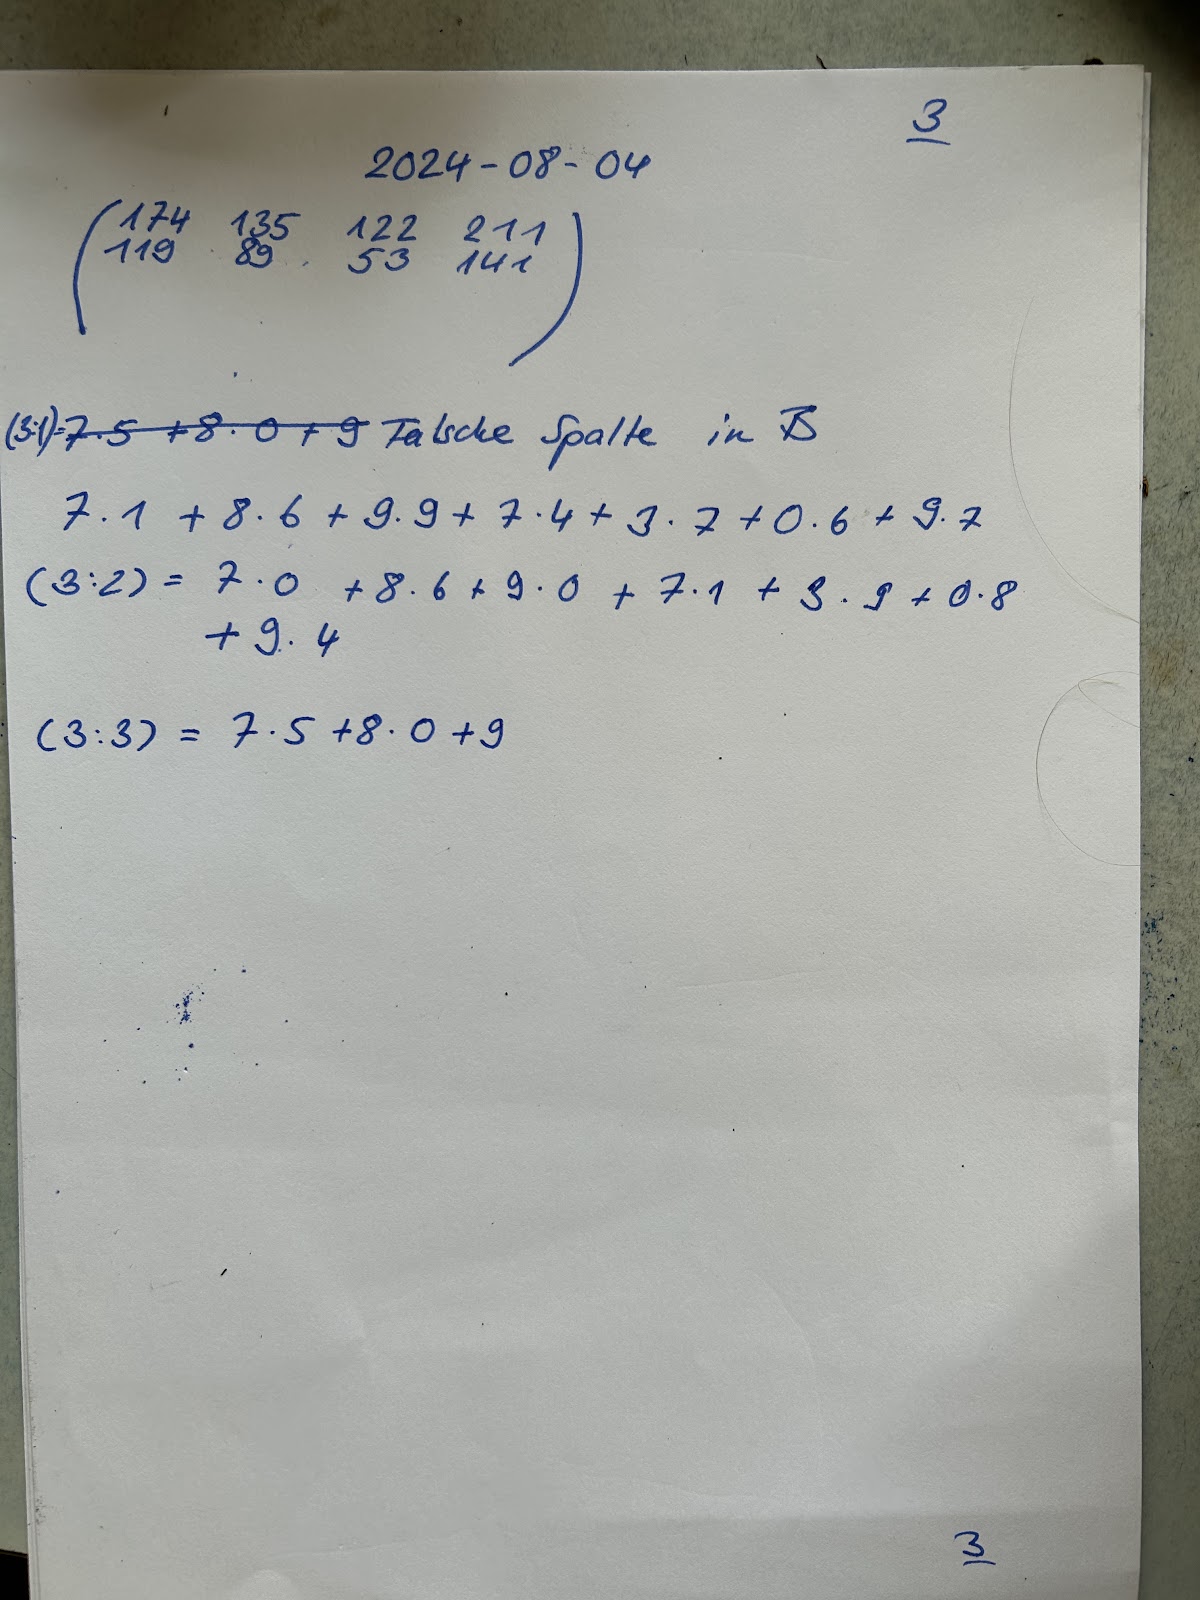 3
2024-08-04
174 135 122 211
119 89 53 141
(3:1)=7·5 +8·0 +9 Falsche Spalte in B
7·1 +8·6 +9·9+7·4+3·7+0·6+9·7
(3:2) = 7·0 +8·6+9·0 +7·1 +3·9+0·8
+9·4
(3:3) = 7·5+8·0+9
3